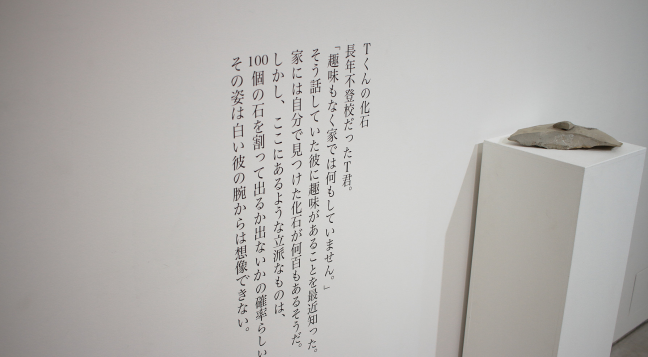 Tくんの化石
長年不登校だったT君。
「趣味もなく家では何もしていません。」
そう話していた彼に趣味があることを最近知った。
家には自分で見つけた化石が何百もあるそうだ。
しかし、ここにあるような立派なものは、
100個の石を割って出るか出ないかの確率らしい
その姿は白い彼の腕からは想像できない。